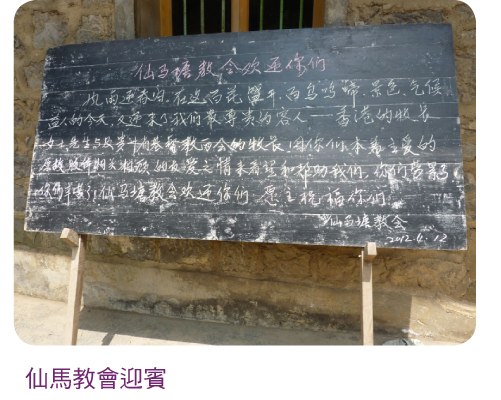 仙马塘教会欢迎你们
风雨送春归,在这百花盛开,百鸟鸣啼,景色气候
益人的今天,又迎来了我们最尊贵的客人——香港的牧长
女士先生与及贵州省基督教两会的牧长,因你们本着主爱的
和帮助我们,你们
仙马塘教会欢迎你们 愿主祝福你们
仙马塘教会
2012.4.12
仙馬教會迎賓